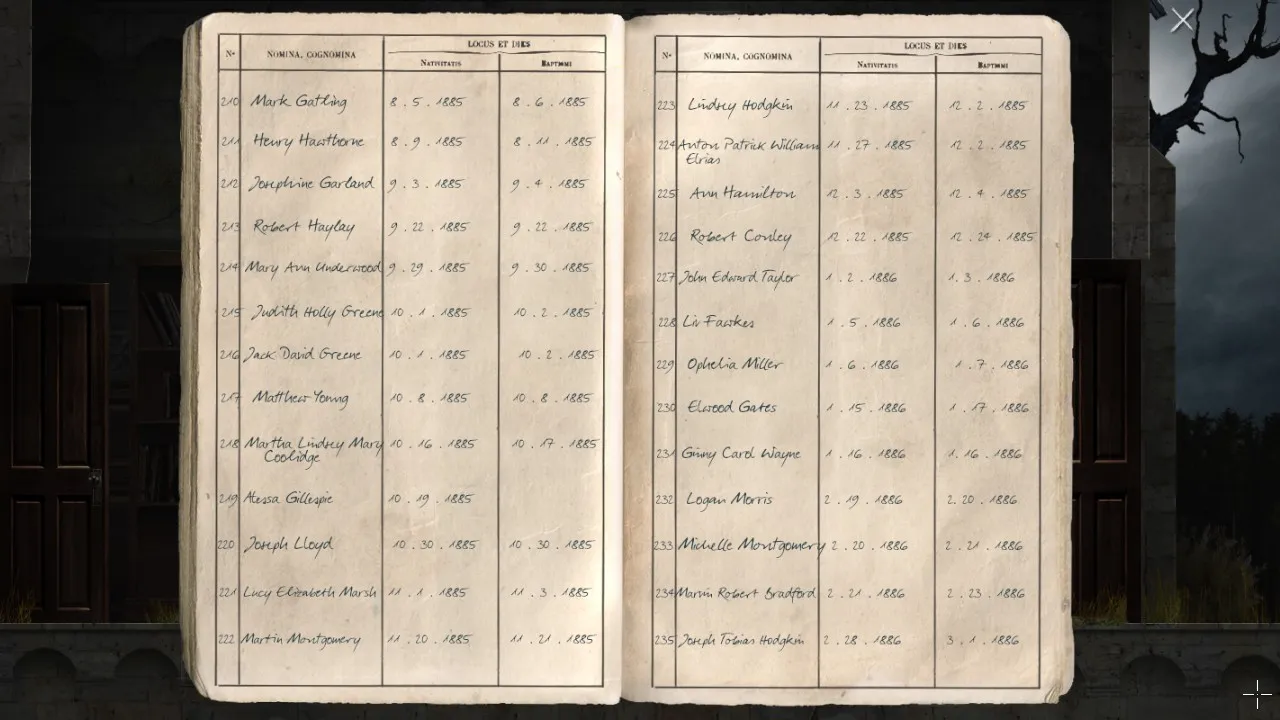 Nº NOMINA, COGNOMINA LOCUS ET DIES
NATIVITATIS BAPTISMI
210 Mark Gatling 8 . 5 . 1885 8 . 6 . 1885
211 Henry Hawthorne 8 . 9 . 1885 8 . 11 . 1885
212 Josephine Garland 9 . 3 . 1885 9 . 4 . 1885
213 Robert Haylay 9 . 22 . 1885 9 . 22 . 1885
214 Mary Ann Underwood 9 . 29 . 1885 9 . 30 . 1885
215 Judith Holly Greene 10 . 1 . 1885 10 . 2 . 1885
216 Jack David Greene 10 . 1 . 1885 10 . 2 . 1885
217 Matthew Young 10 . 8 . 1885 10 . 8 . 1885
218 Martha Lindsey Mary 10 . 16 . 1885 10 . 17 . 1885
Coolidge
219 Alessa Gillespie 10 . 19 . 1885
220 Joseph Lloyd 10 . 30 . 1885 10 . 30 . 1885
221 Lucy Elizabeth Marsh 11 . 1 . 1885 11 . 3 . 1885
222 Martin Montgomery 11 . 20 . 1885 11 . 21 . 1885
Nº NOMINA, COGNOMINA LOCUS ET DIES
NATIVITATIS BAPTISMI
223 Lindsey Hodgkin 11 . 23 . 1885 12 . 2 . 1885
224 Anton Patrick William 11 . 27 . 1885 12 . 2 . 1885
Elrias
225 Ann Hamilton 12 . 3 . 1885 12 . 4 . 1885
226 Robert Conley 12 . 22 . 1885 12 . 24 . 1885
227 John Edward Taylor 1 . 2 . 1886 1 . 3 . 1886
228 Liv Fawkes 1 . 5 . 1886 1 . 6 . 1886
229 Ophelia Miller 1 . 6 . 1886 1 . 7 . 1886
230 Elwood Gates 1 . 15 . 1886 1 . 17 . 1886
231 Ginny Carol Wayne 1 . 16 . 1886 1 . 16 . 1886
232 Logan Morris 2 . 19 . 1886 2 . 20 . 1886
233 Michelle Montgomery 2 . 20 . 1886 2 . 21 . 1886
234 Marvin Robert Bradford 2 . 21 . 1886 2 . 23 . 1886
235 Joseph Tobias Hodgkin 2 . 28 . 1886 3 . 1 . 1886